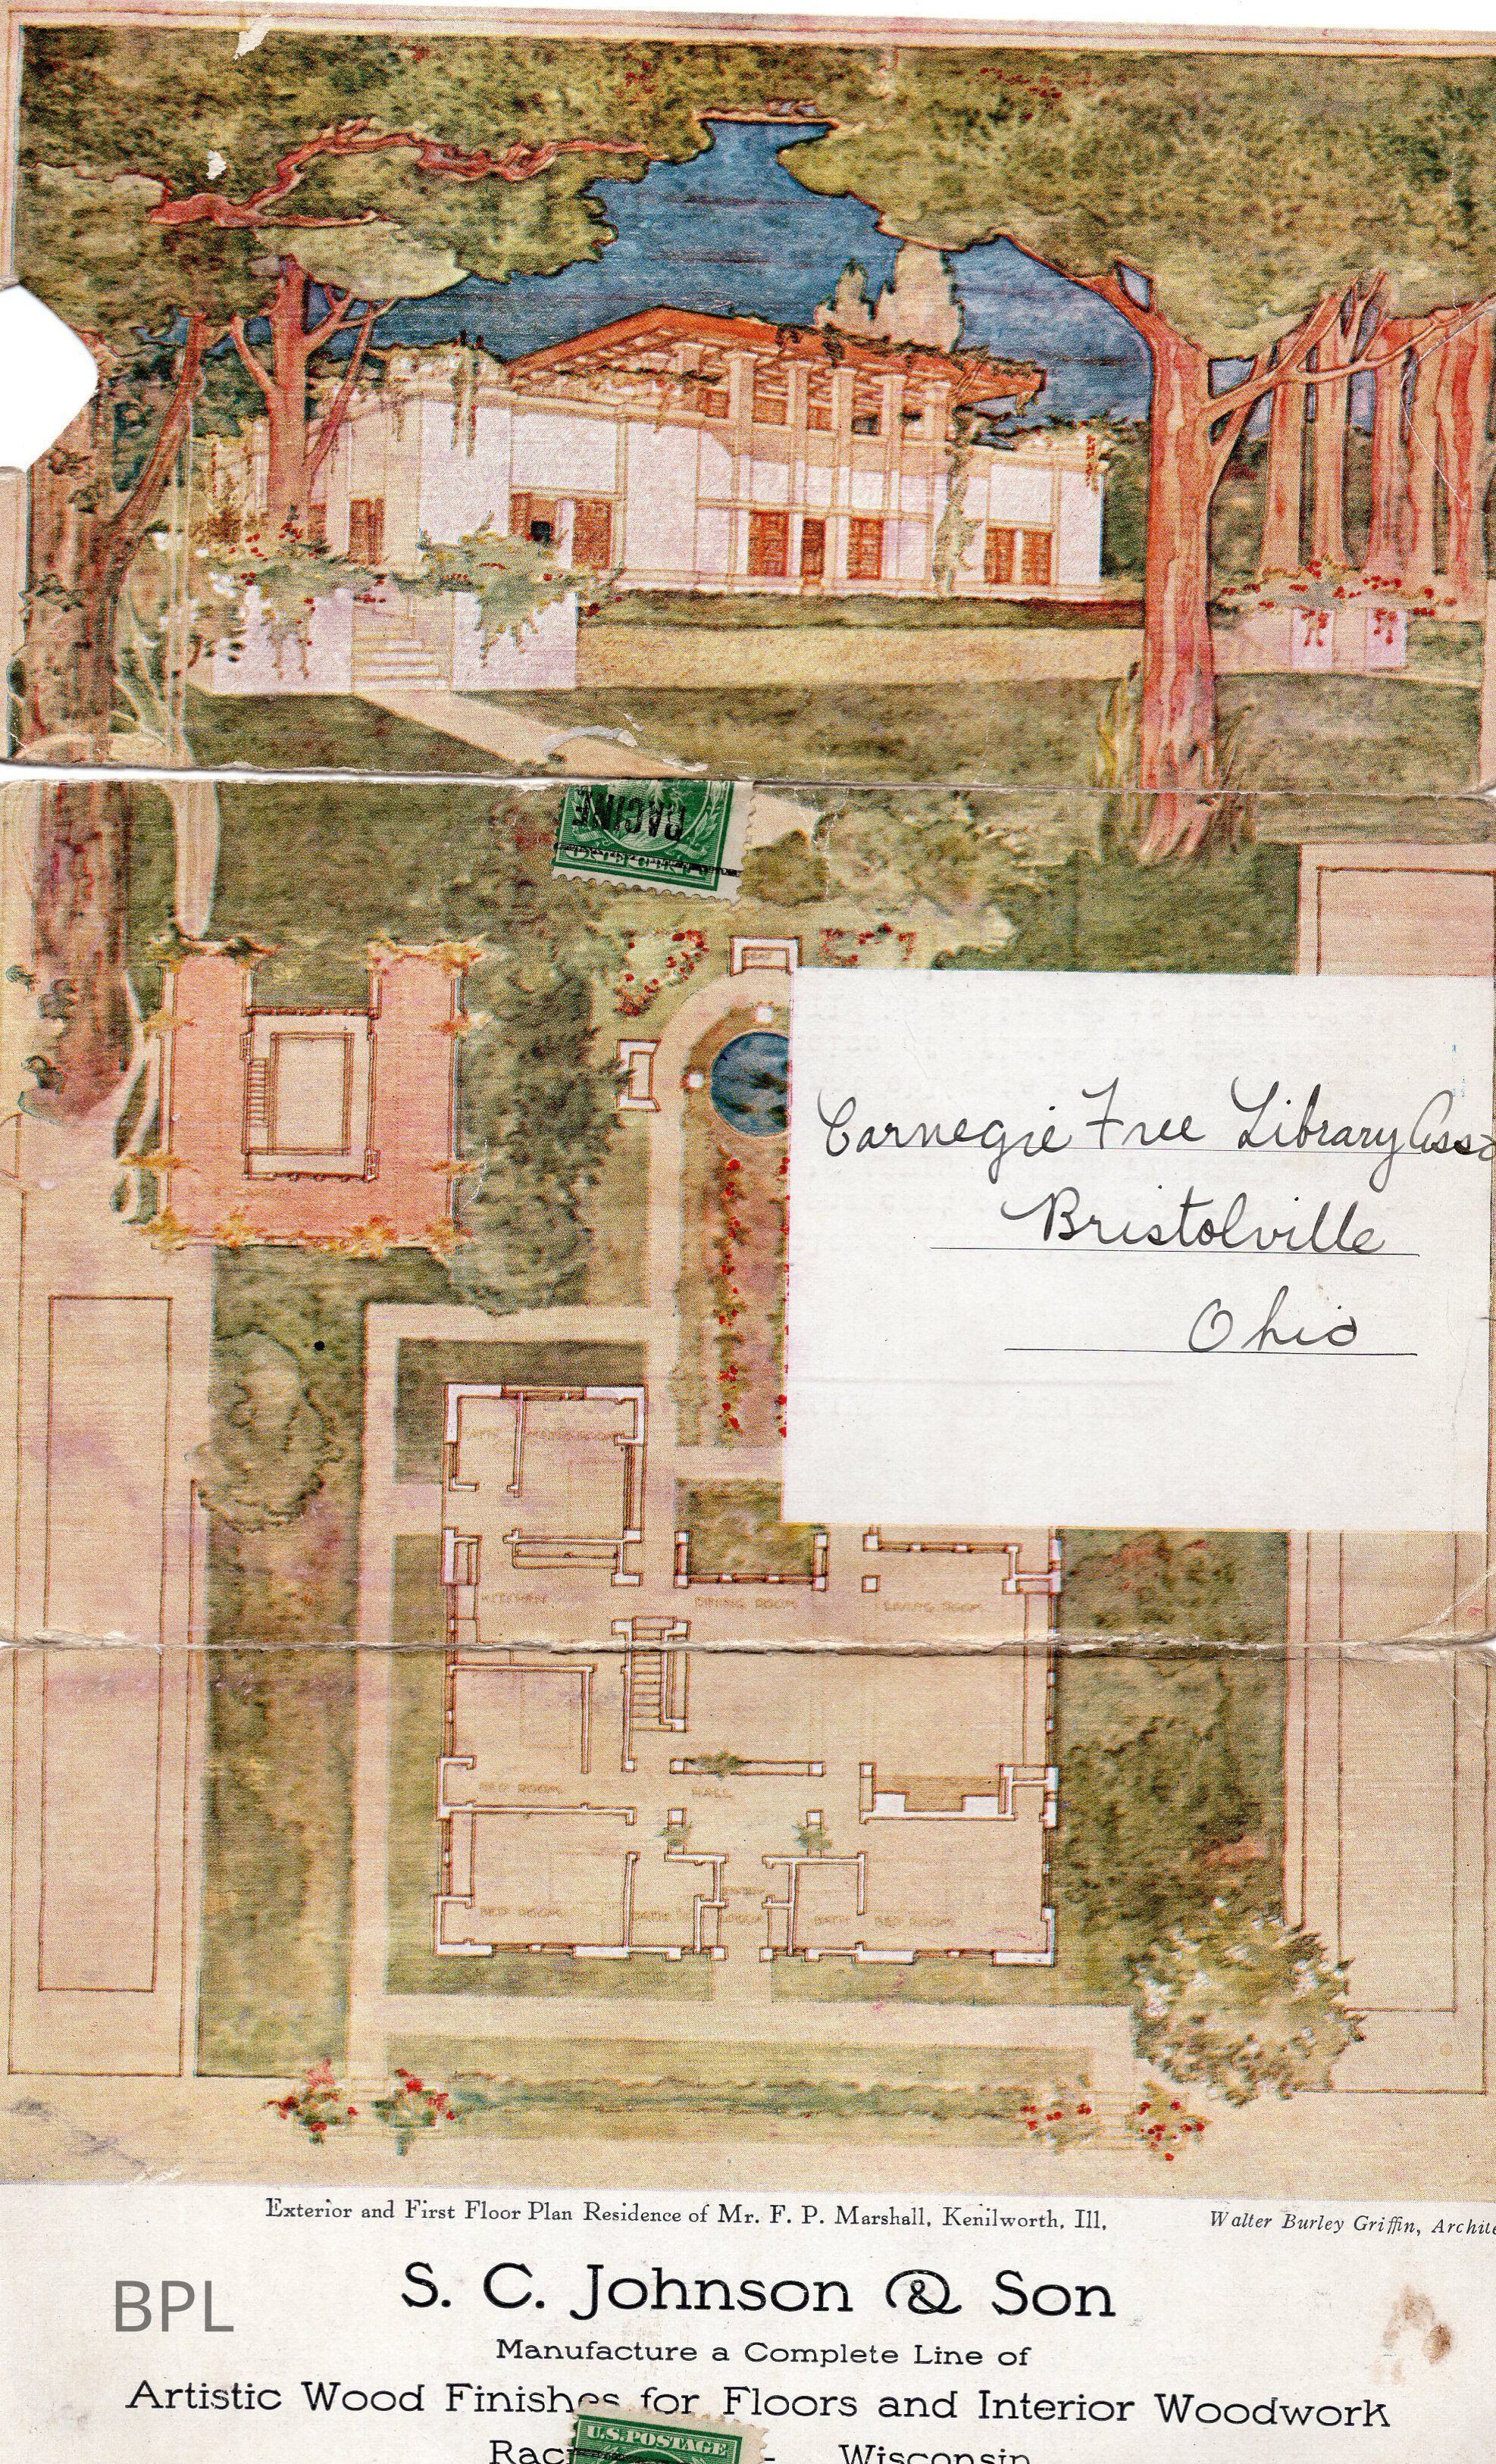 RACINE
Carnegie Free Library Ass
Bristolville
Ohio
KITCHEN
DINING ROOM
LIVING ROOM
BED ROOM
HALL
BED ROOM
BATH
BED ROOM
Exterior and First Floor Plan Residence of Mr. F. P. Marshall, Kenilworth, Ill,
Walter Burley Griffin, Archite
BPL
S. C. Johnson & Son
Manufacture a Complete Line of
Artistic Wood Finishes for Floors and Interior Woodwork
U.S. POSTAGE
Raci - Wisconsin